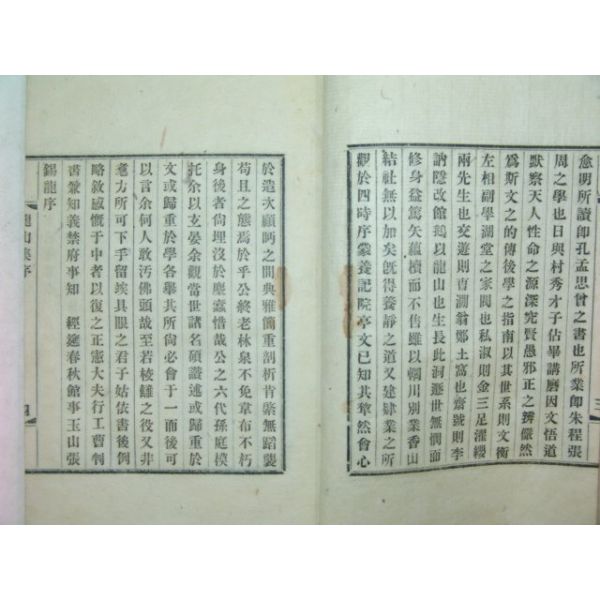 愈明所讀卽孔孟思曾之書也所業卽朱程張
周之學也日與村秀才子佔畢講磨因文悟道
默察天人性命之源深究賢愚邪正之辨儼然
爲斯文之的傳後學之指南以其世系則文衡
左相副學湖堂之家閥也私淑則金三足濯纓
兩先生也交遊則曺澗翁鄭土窩也齋號則李
訥隱改館鶴以龍山也生長此洞遯世無悶而
修身益篤矣蘊櫝而不售雖以輞川別業香山
結社無以加矣旣得養靜之道又建肄業之所
觀於四時序蒙養記院亭文已知其犖然會心
於造次顧眄之間典雅簡重剖析肯綮無蹈襲
苟且之態焉於乎公終老林泉不免韋布不朽
身後者尙埋沒於塵蠹惜哉公之六代孫庭模
托余以玄晏余觀當世諸名碩蓋述或歸重於
文或歸重於學各擧其所尙必會于一而後可
以言余何人敢汚佛頭哉至若棱䨥之役又非
耄方所可下手留俟具眼之君子姑依書後例
略敘感慨于中者以復之正憲大夫行工曹判
書兼知義禁府事知 經筵春秋館事玉山張
錫龍序
龍山集序
四
三